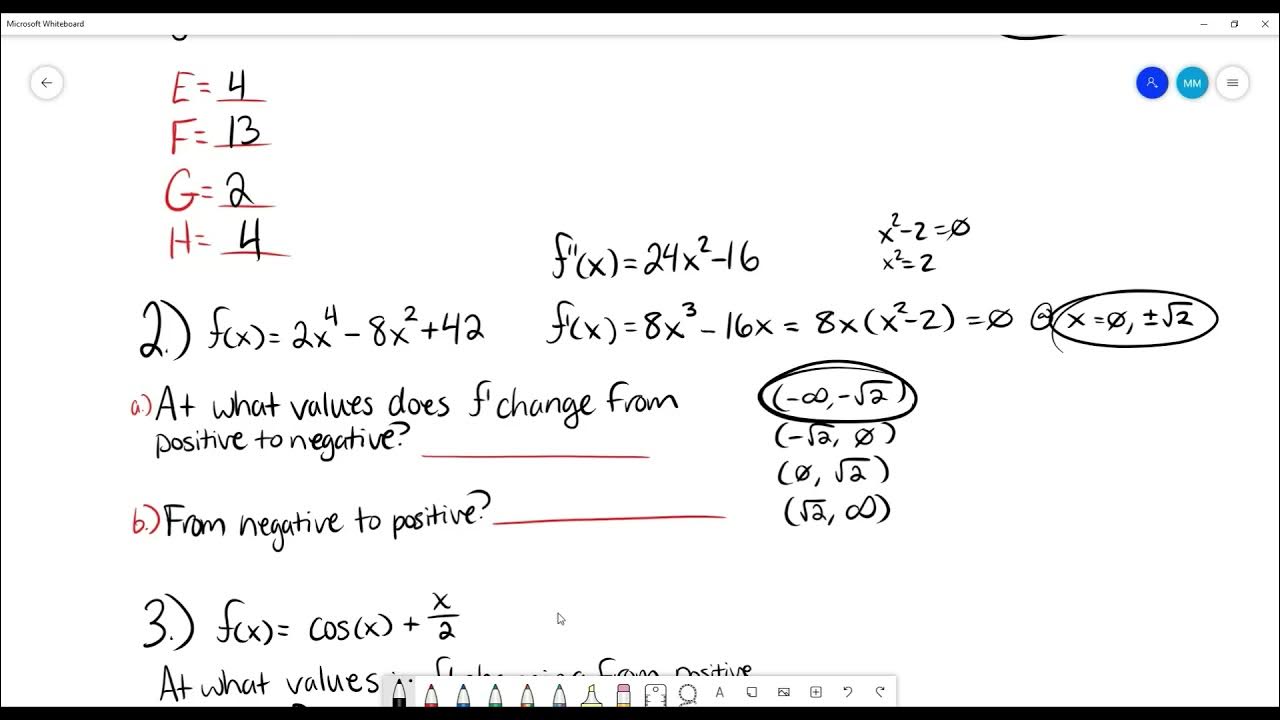 Microsoft Whiteboard
MM
E = 4
F = 13
G = 2
H = 4
x²-2=∅
x²=2
f"(x) = 24x²-16
2.) f(x) = 2x⁴ - 8x² + 42
f'(x) = 8x³ - 16x = 8x(x²-2) = ∅ @ x = ∅, ±√2
a.) At what values does f' change from
positive to negative?
(-∞, -√2)
(-√2, ∅)
(∅, √2)
(√2, ∞)
b.) From negative to positive?
3.) f(x) = cos(x) + x/2
At what values from positive
A